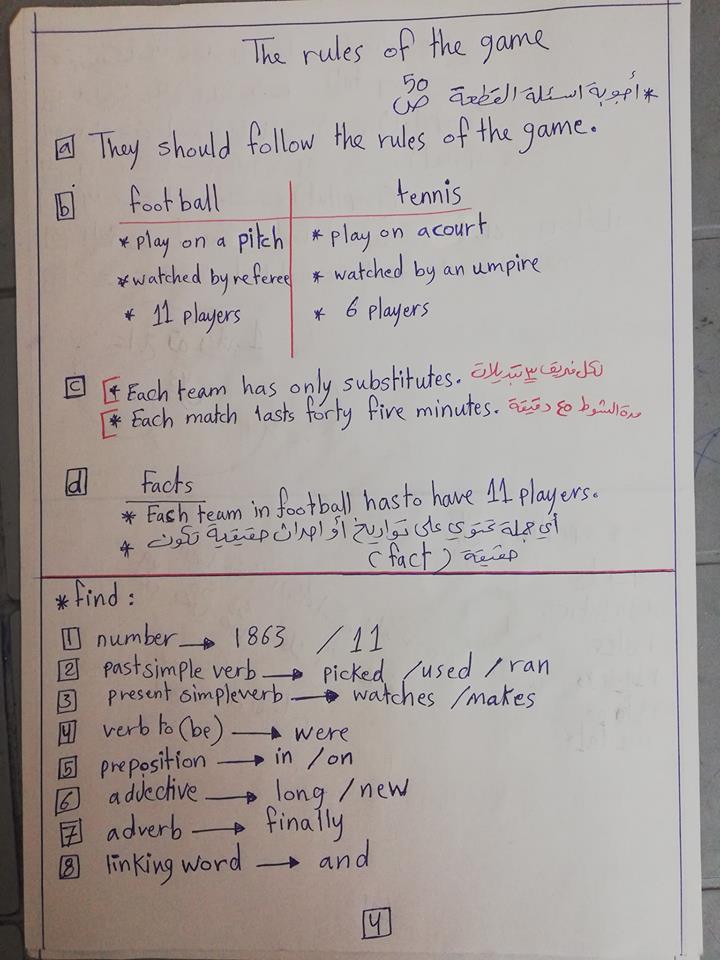 The rules of the game
* أجوبة اسئلة القطعة ص 50
a They should follow the rules of the game.
b football tennis
* play on a pitch * play on acourt
* watched by referee * watched by an umpire
* 11 players * 6 players
c * Each team has only substitutes. لكل فريق ٣ تبديلات
* Each match lasts forty five minutes. مدة الشوط ٤٥ دقيقة
d Facts
* Eash team in football hasto have 11 players.
* أي جملة تحتوي على تواريخ أو احداث حقيقية تكون
حقيقة (fact)
* find :
1 number → 1863 / 11
2 past simple verb → picked / used / ran
3 present simple verb → watches / makes
4 verb to (be) → were
5 preposition → in / on
6 addective → long / new
7 adverb → finally
8 linking word → and
4